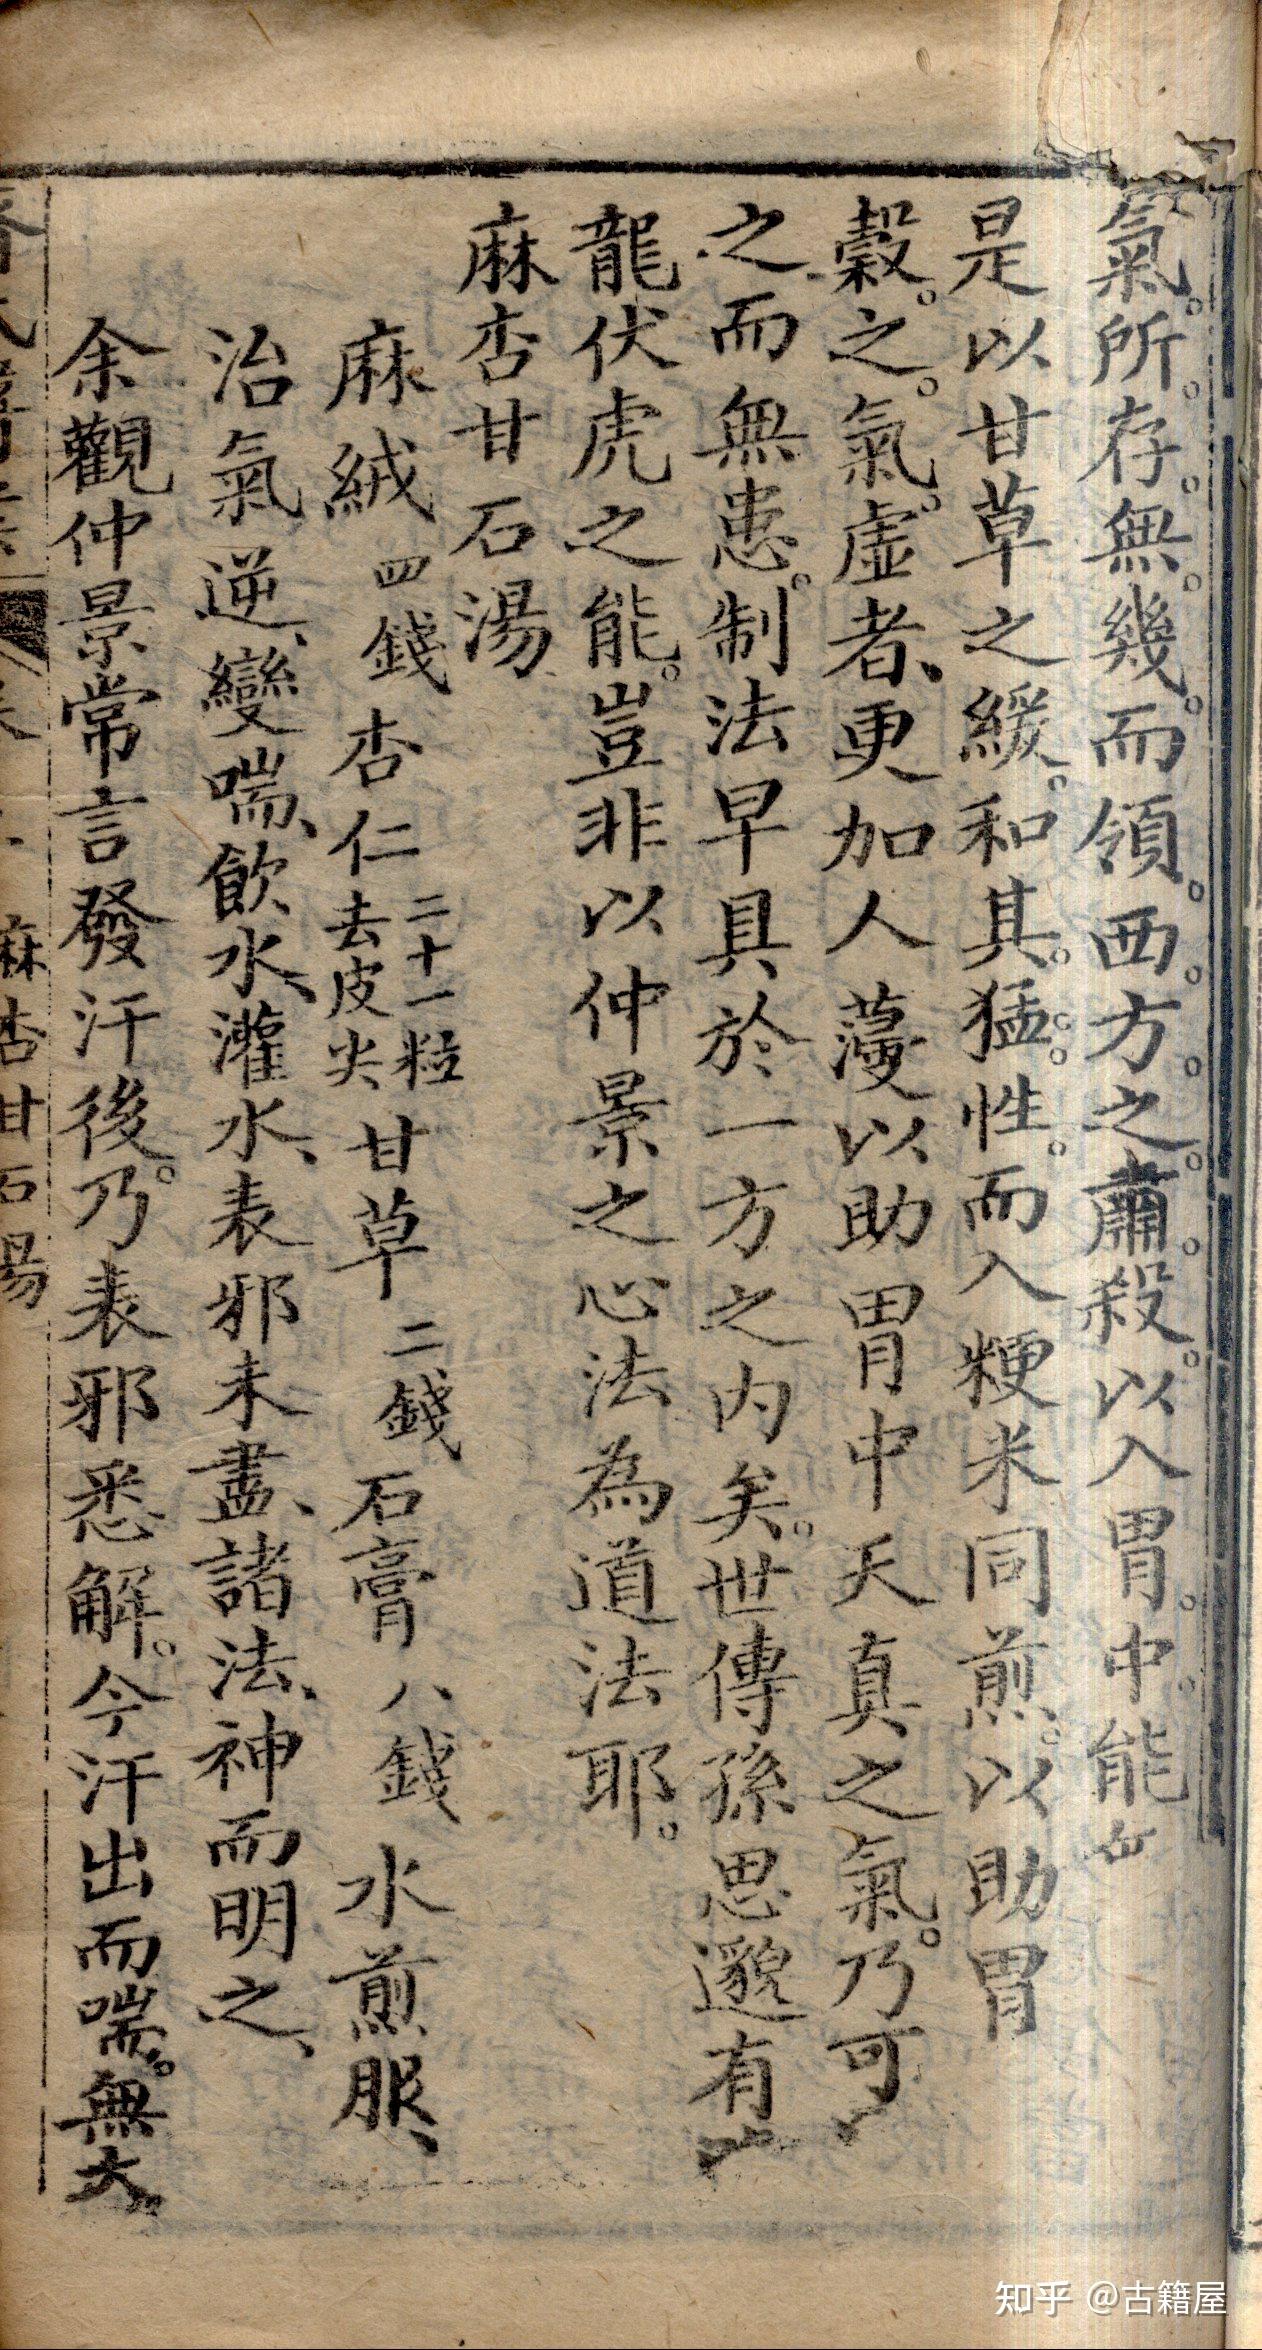 氣。所。存。無。幾。而領。西。方。之。肅。殺。以入胃。中。能
是以甘草之緩。和其。猛。性。而入粳米同煎。以助胃
穀。之。氣。虛者、更加人蓡以助胃中天真之氣。乃可
之而無患。制法早具於一方之内矣。世傳孫思邈有
龍伏虎之能。豈非以仲景之心法為道法耶。
麻杏甘石湯
麻絨四錢杏仁二十一粒去皮尖甘草二錢石膏八錢水煎服、
治氣逆、變喘、飲水、灌水、表邪未盡、諸法、神而明之、
余觀仲景常言發汗後。乃表邪悉解。今汗出而喘。無大
麻杏甘石湯
知乎 @古籍屋